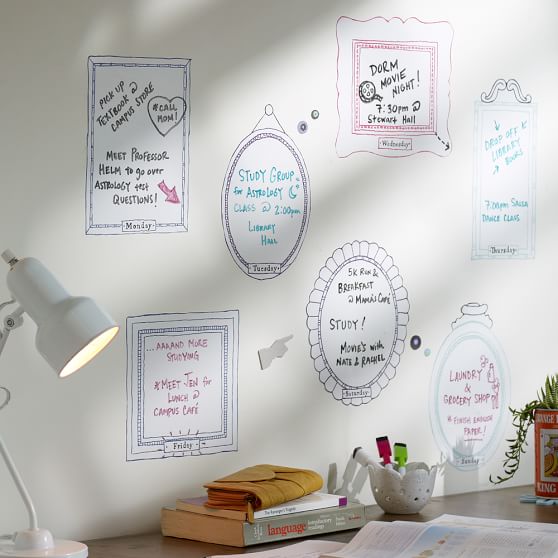 PICK UP
TEXTBOOK @
CAMPUS STORE
#CALL
MOM!
MEET PROFESSOR
HELM TO GO OVER
ASTROLOGY TEST
QUESTIONS!
Monday
STUDY GROUP
FOR ASTROLOGY
CLASS @ 2:00PM
LIBRARY
HALL
Tuesday
DORM
MOVIE
NIGHT!
7:30PM @
STEWART HALL
Wednesday
DROP OFF
LIBRARY
BOOKS
7:00PM SALSA
DANCE CLASS
Thursday
...AAAAND MORE
STUDYING
*MEET JEN FOR
LUNCH @
CAMPUS CAFÉ
Friday
5K RUN &
BREAKFAST
@ MAMA'S CAFÉ
STUDY!
MOVIE'S WITH
NATE & RACHEL
Saturday
LAUNDRY
&
GROCERY SHOP
*FINISH ENGLISH
PAPER!
Sunday
language